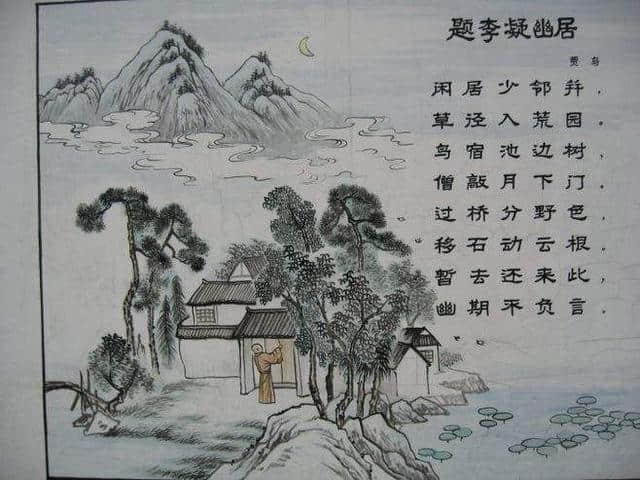 题李凝幽居
贾岛
闲居少邻并，
草径入荒园。
鸟宿池边树，
僧敲月下门。
过桥分野色，
移石动云根。
暂去还来此，
幽期不负言。